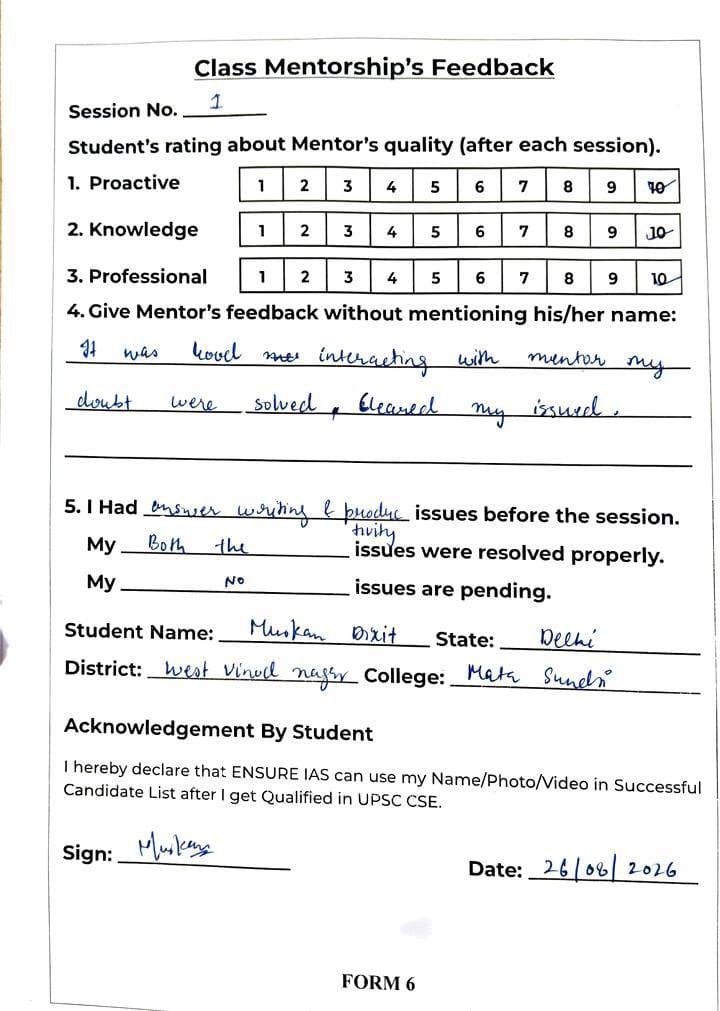 Class Mentorship's Feedback
Session No. 1
Student's rating about Mentor's quality (after each session).
1. Proactive 1 2 3 4 5 6 7 8 9 10
2. Knowledge 1 2 3 4 5 6 7 8 9 10
3. Professional 1 2 3 4 5 6 7 8 9 10
4. Give Mentor's feedback without mentioning his/her name:
It was interacting with mentor my
doubt were solved, Cleared my issued.
5. I Had answer writing & produc issues before the session.
tivity
My Both the issues were resolved properly.
My No issues are pending.
Student Name: Muskan Dixit State: Delhi
District: West Vinod nagar College: Mata Sundri
Acknowledgement By Student
I hereby declare that ENSURE IAS can use my Name/Photo/Video in Successful
Candidate List after I get Qualified in UPSC CSE.
Sign: Muskan
Date: 26/08/2026
FORM 6